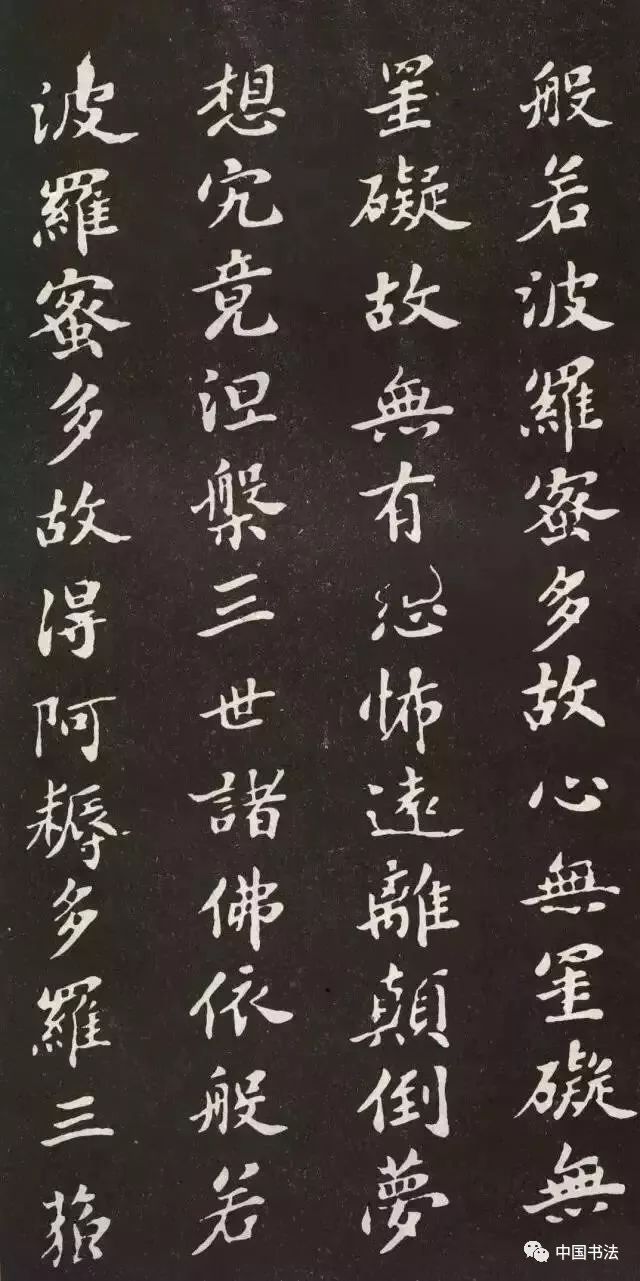 般若波羅蜜多故心無罣礙無
罣礙故無有恐怖遠離顛倒夢
想究竟涅槃三世諸佛依般若
波羅蜜多故得阿耨多羅三藐
中国书法